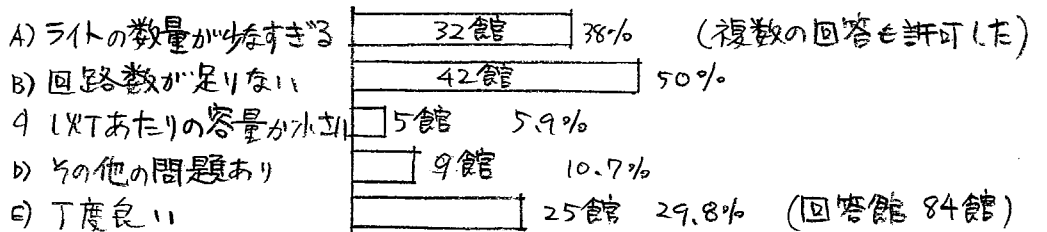 A) ライトの数量が少なすぎる 32館 38% (複数の回答を許可した)
B) 回路数が足りない 42館 50%
C) 1灯あたりの容量が小さい 5館 5.9%
D) その他の問題あり 9館 10.7%
E) 丁度良い 25館 29.8% (回答館 84館)